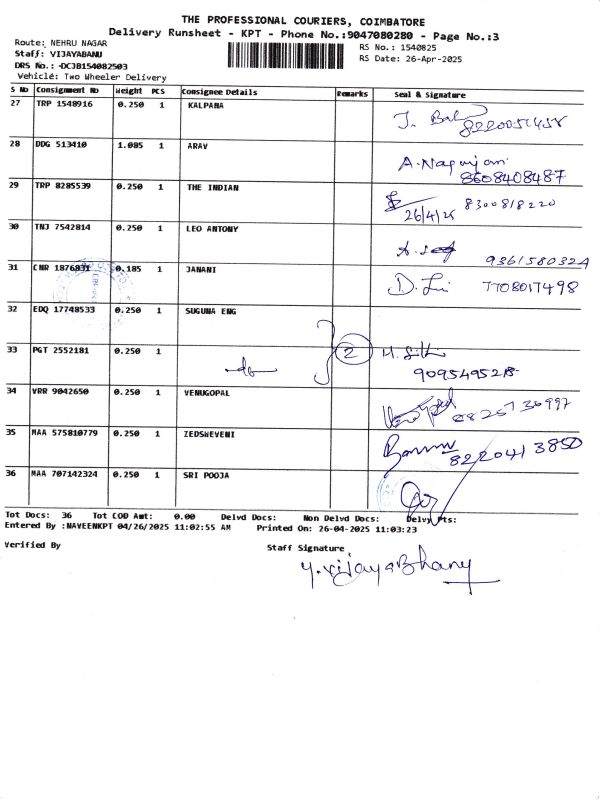 THE PROFESSIONAL COURIERS, COIMBATORE
Delivery Runsheet - KPT - Phone No.:9047080280 - Page No.:3
Route: NEHRU NAGAR
RS No.: 1540825
Staff: VIJAYABANU
RS Date: 26-Apr-2025
DRS No.: -DCJB154082503
Vehicle: Two Wheeler Delivery
S No Consignment No Weight PCS Consignee Details Remarks Seal & Signature
27 TRP 1548916 0.250 1 KALPANA
28 DDG 513410 1.085 1 ARAV
A. 8608408487
29 TRP 8285539 0.250 1 THE INDIAN
26/4/25 8300818220
30 TNJ 7542814 0.250 1 LEO ANTONY
9361580324
31 CNR 1876831 0.185 1 JANANI
D. 7708017498
32 EDQ 17748533 0.250 1 SUGUNA ENG
33 PGT 2552181 0.250 1 do 2
34 VRR 9042650 0.250 1 VENUGOPAL
35 MAA 575810779 0.250 1 ZEDSWEVENI
8220413850
36 MAA 707142324 0.250 1 SRI POOJA
Tot Docs: 36 Tot COD Amt: 0.00 Delvd Docs: Non Delvd Docs: Delvy Pts:
Entered By :NAVEENKPT 04/26/2025 11:02:55 AM Printed On: 26-04-2025 11:03:23
Verified By Staff Signature
y.vijayaBhany